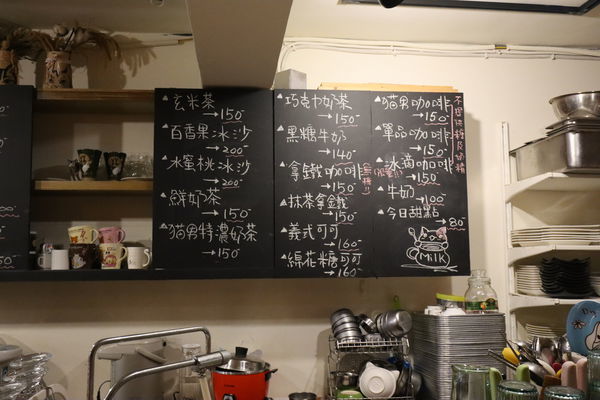 ▲玄米茶
→150
▲百香果冰沙
→200
▲水蜜桃冰沙
→200
▲鮮奶茶
→150
▲貓男特濃奶茶
→150
▲巧克力奶茶
→150
▲黑糖牛奶
→140
▲拿鐵咖啡
→150
▲抹茶拿鐵
→150
▲義式可可
→160
▲綿花糖可可
→160
▲貓男咖啡
→150
▲單品咖啡
→150
▲冰滴咖啡
→150
▲牛奶
→100
▲今日甜點
→80
Milk